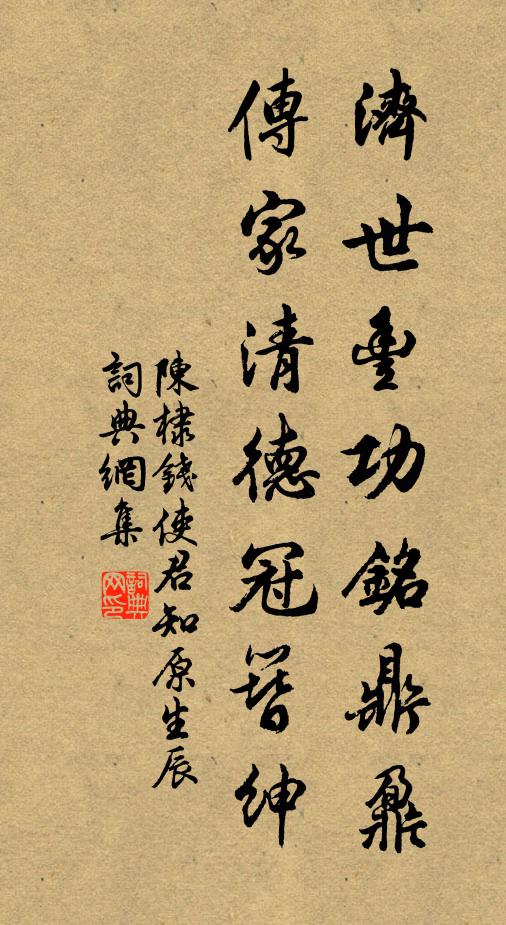 濟世豐功銘鼎鼐
傳家清德冠簪紳
陳棣錢使君知原生辰
詞典網集
詞典网印